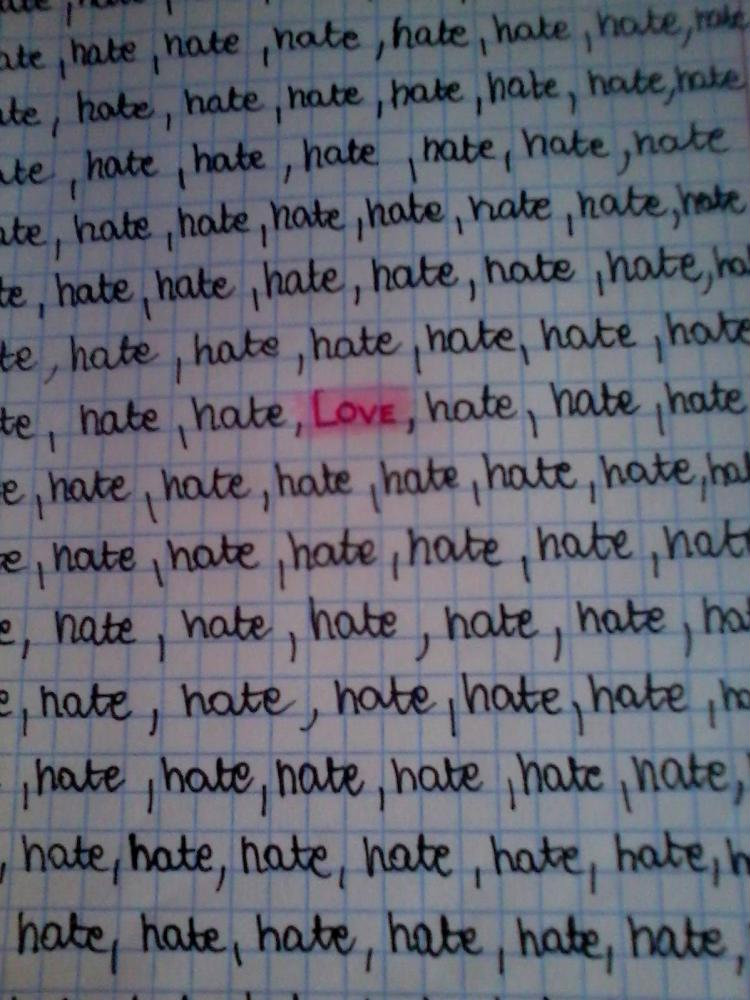 hate, hate, hate, hate, hate, hate, hate
, hate, hate, hate, hate, hate, hate, hate
, hate, hate, hate, hate, hate, hate
, hate, hate, hate, hate, hate, hate, hate
, hate, hate, hate, hate, hate, hate,
, hate, hate, hate, hate, hate, hate
, hate, hate, LOVE, hate, hate, hate
, hate, hate, hate, hate, hate, hate,
, hate, hate, hate, hate, hate, hate
, hate, hate, hate, hate, hate,
, hate, hate, hate, hate, hate,
, hate, hate, hate, hate, hate, hate,
, hate, hate, hate, hate, hate, hate,
hate, hate, hate, hate, hate, hate,